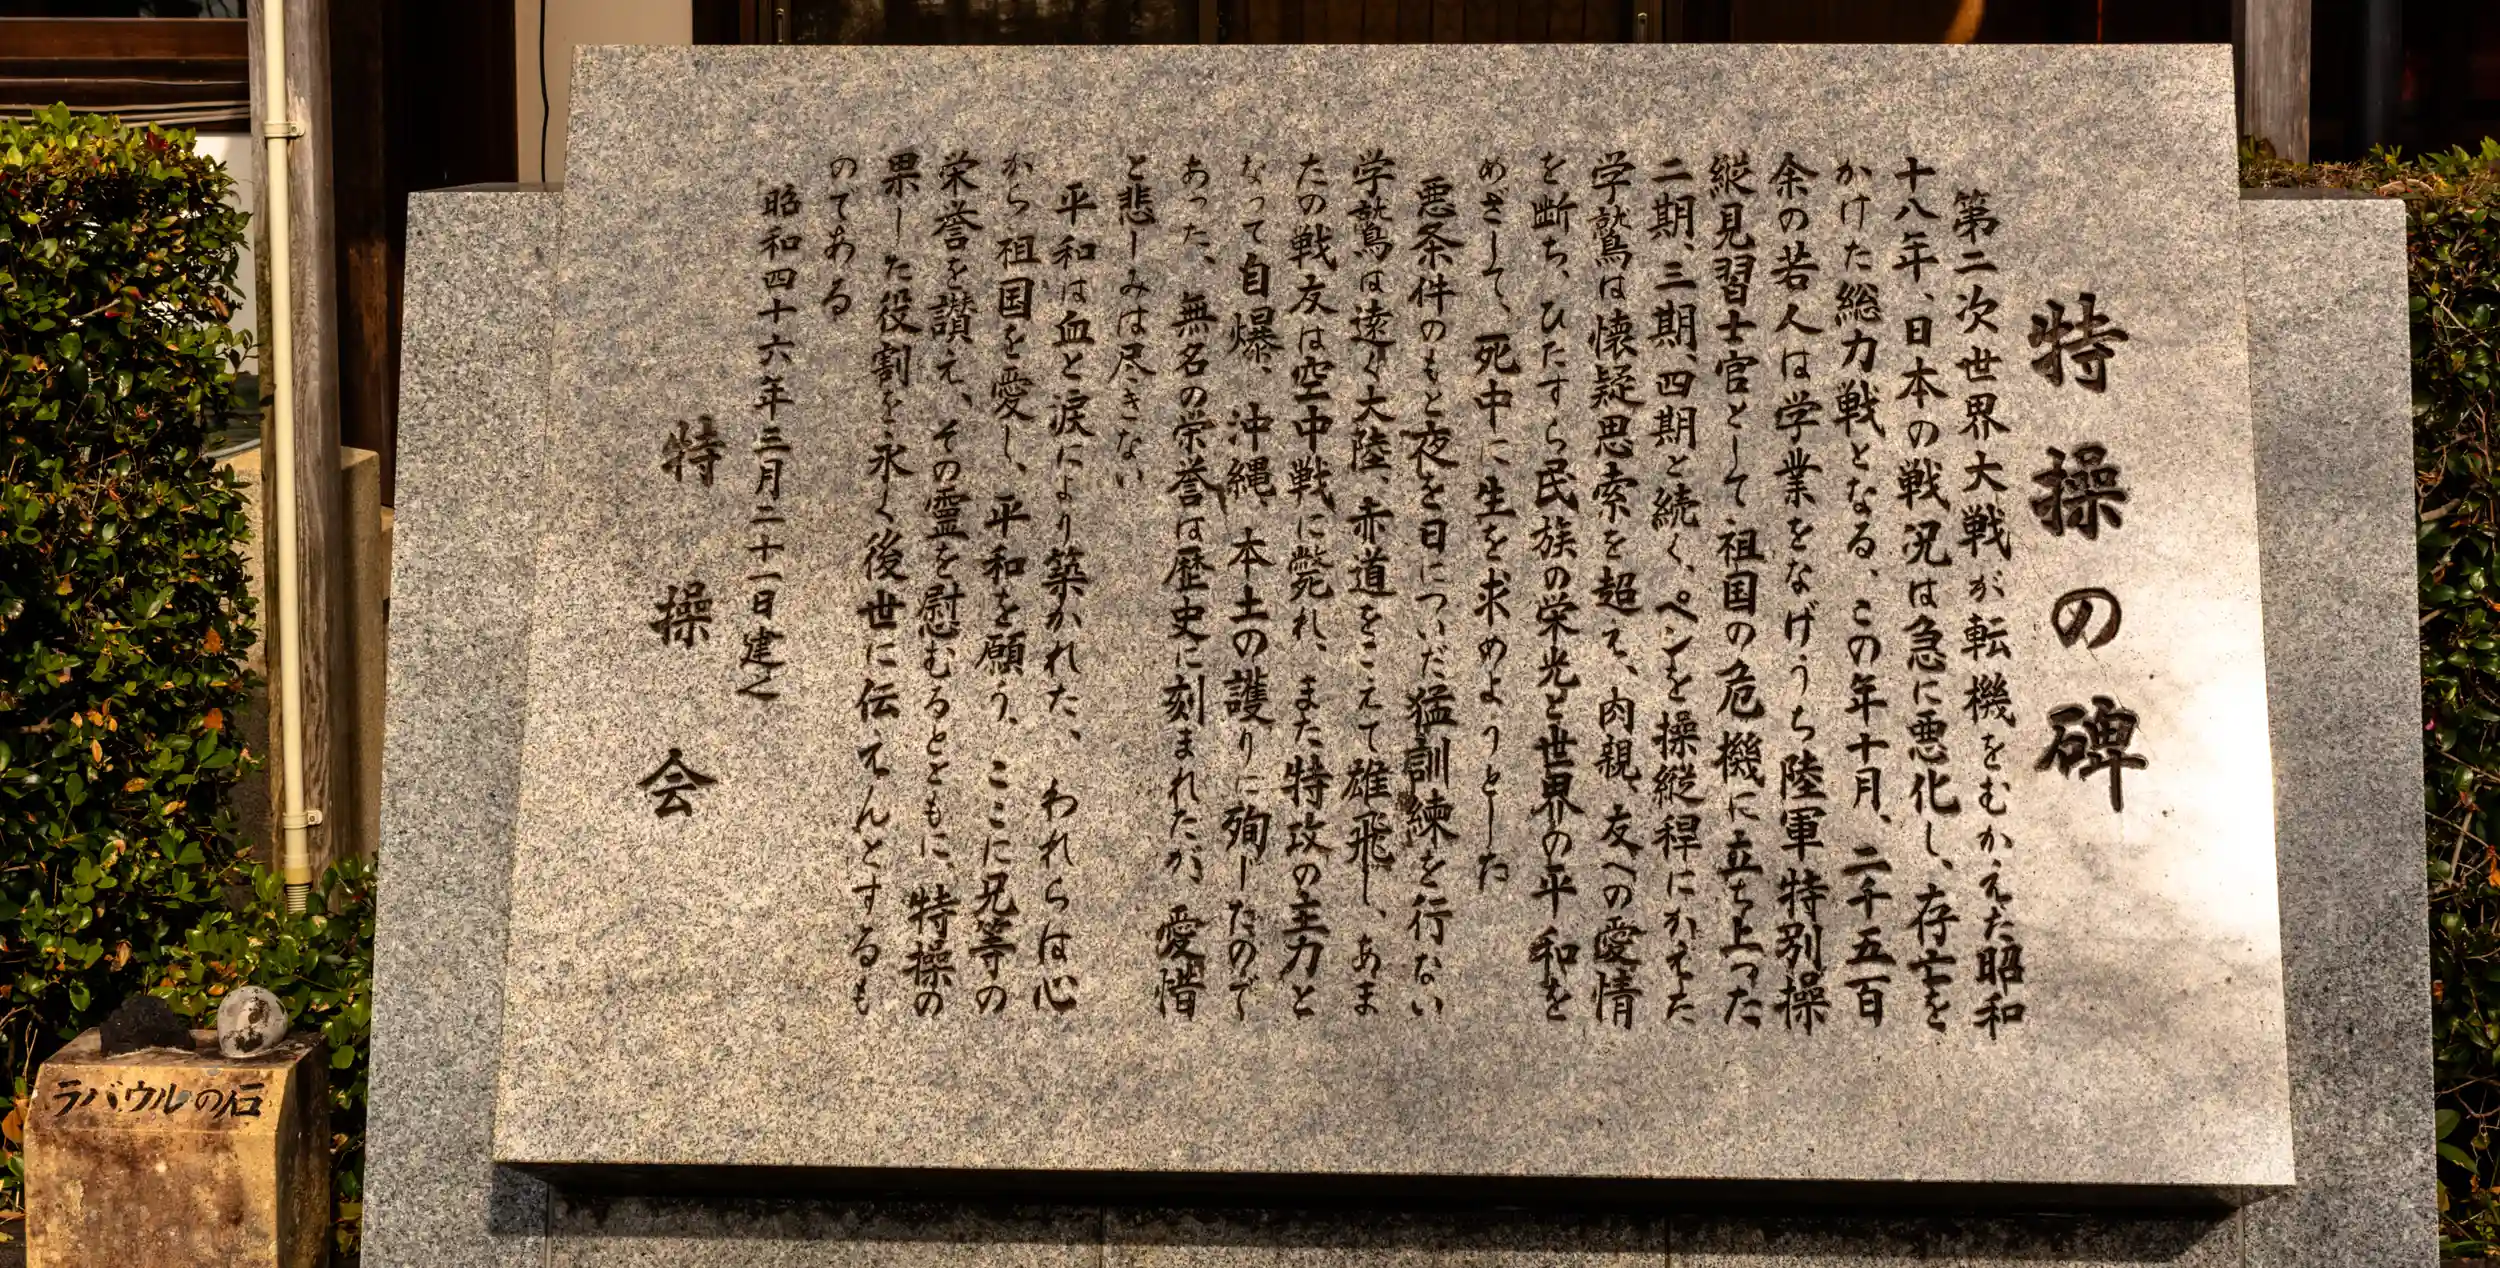 特操の碑
第二次世界大戦が転機をむかえた昭和
十八年、日本の戦況は急に悪化し、存亡を
かけた総力戦となる、この年十月、二千五百
余の若人は学業をなげうち陸軍特別操
縦見習士官として祖国の危機に立ち上った
二期、三期、四期と続く、ペンを操縦稈にかえた
学鷲は懐疑思索を超え、肉親、友への愛情
を断ち、ひたすら民族の栄光と世界の平和を
めざして、死中に生を求めようとした
悪条件のもと夜を日についだ猛訓練を行ない
学鷲は遠く大陸、赤道をこえて雄飛し、あま
たの戦友は空中戦に斃れ、また特攻の主力と
なって自爆、沖縄、本土の護りに殉じたので
あった、無名の栄誉は歴史に刻まれたが、愛惜
と悲しみは尽きない
平和は血と涙により築かれた、われらは心
から祖国を愛し、平和を願う、ここに兄等の
栄誉を讃え、その霊を慰むるとともに、特操の
果した役割を永く後世に伝えんとするも
のである
昭和四十六年三月二十一日建之
特操会
ラバウルの石